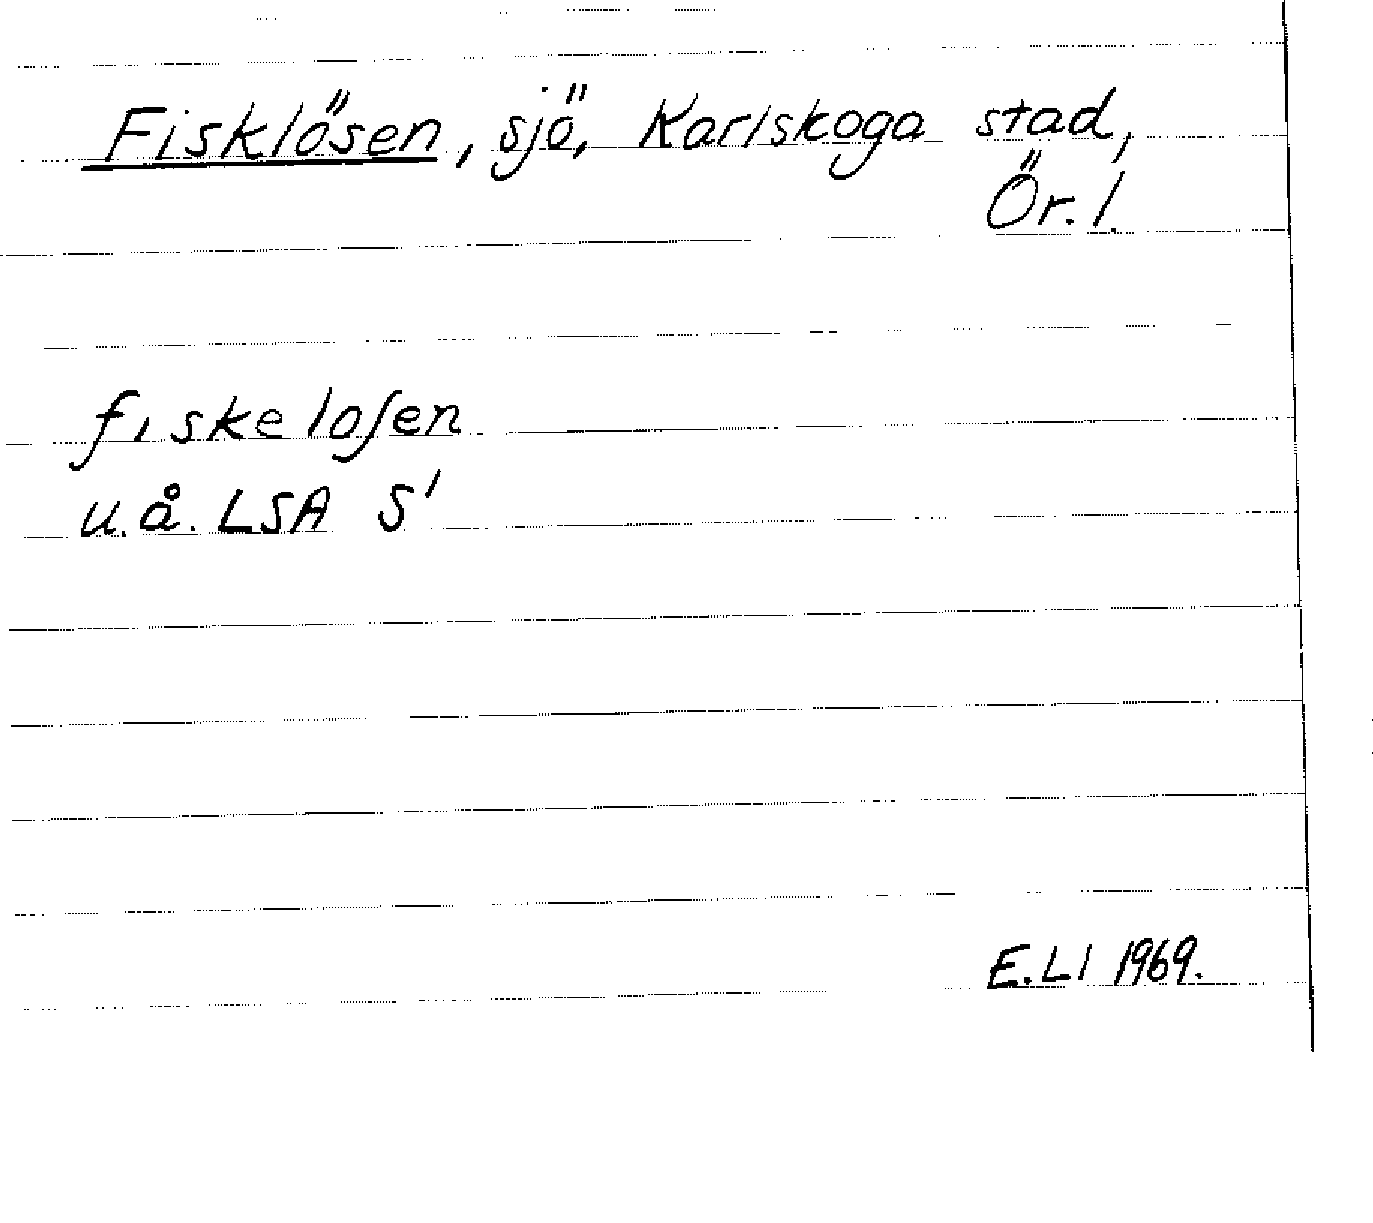 Fisklösen, sjö, Karlskoga stad,
Ör. l.
fiskeloſen
u.å. LSA S'
E.LI 1969.